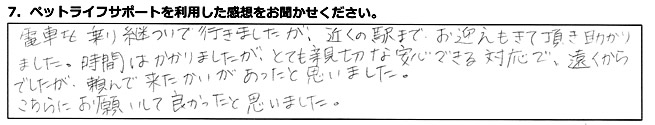 7. ペットライフサポートを利用した感想をお聞かせください。
電車を乗り継ついで行きましたが、近くの駅まで、お迎えもきて頂き助かり
ました。時間はかかりましたが、とても親切な安心できる対応で、遠くから
でしたが、頼んで来たかいがあったと思いました。
こちらにお願いして良かったと思いました。